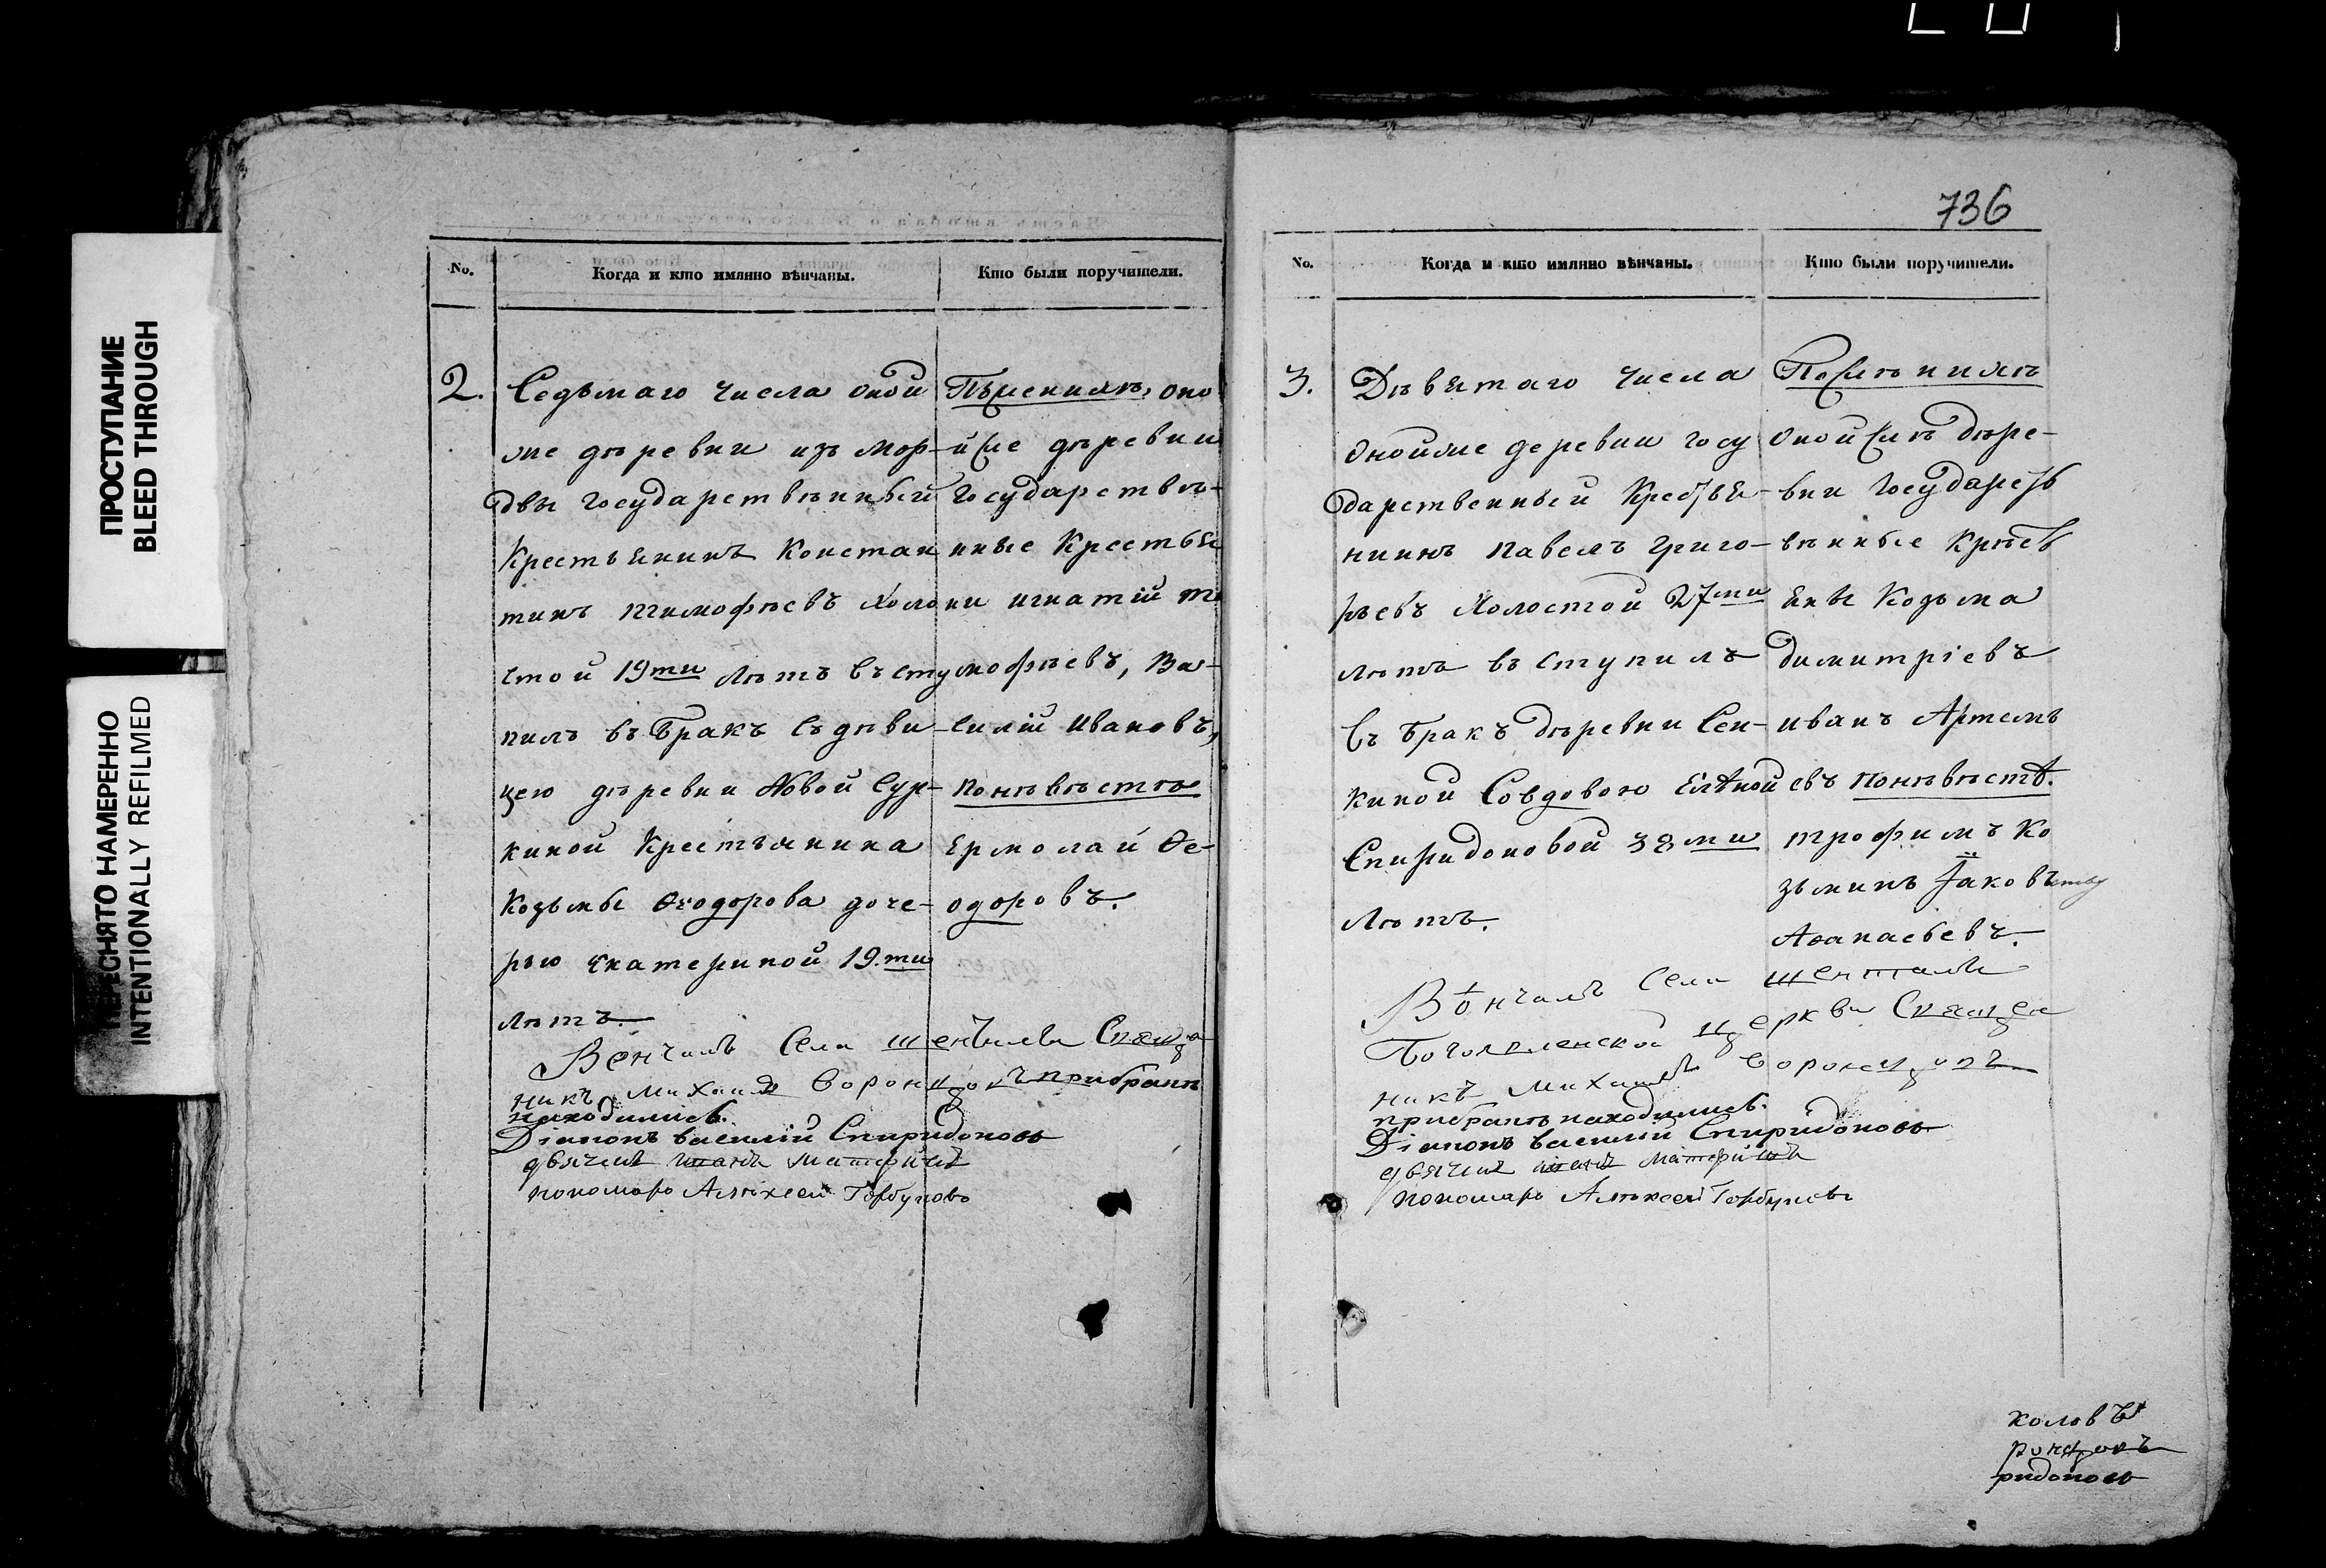 ПРОСТУПАНИЕ
BLEED THROUGH
ПЕРЕСНЯТО НАМЕРЕННО
INTENTIONALLY REFILMED
No.
Когда и кто имянно вѣнчаны.
Кто были поручители.
2.
Седьмаго числа оной
же дѣревни изъ мор-
двы государствѣнный
Крестьянинъ Констан
тинъ тимофѣевъ холо
стой 19ти лѣтъ всту
пилъ въ бракъ съ дѣви-
цею дѣревни Новой Сур-
киной Крестьянина
Козьмы Ѳеодорова доче-
рью Екатериной 19.ти
лѣтъ.
По женихѣ, оно
й же дѣревни
Государствѣ-
нные Крестья
ни игнатій ти
мофѣевъ, Ва-
силій Ивановъ,
по нѣвѣстѣ
Ермолай Ѳе-
одоровъ.
Венчалъ села Шенталы Священ
никъ Михаилъ Воронцовъ при бракѣ
находились.
Діаконъ василий Спиридоновъ
дьячекъ
пономарь Алексей Горбуновъ
736
No.
Когда и кто имянно вѣнчаны.
Кто были поручители.
3.
Дѣвятаго числа
оной же деревни госу
дарственный Крестья-
нинъ павелъ григо-
рьевъ холостой 27ми
лѣтъ вступилъ
въ бракъ дѣревни Сен-
киной Совдовою Елѣной
Спиридоновой 38ми
лѣтъ.
По женихѣ
оной же дѣре-
вни Государств
вѣнные Крѣсть
яне Козьма
димитріевъ
иванъ Артемь
евъ по нѣвѣстѣ.
трофимъ Ко
зьминъ Іаковъ
Аѳанасьевъ.
Вѣнчалъ села Шенталы
Богоявленской церкви Священ
никъ Михаилъ Воронцовъ
при бракѣ находились.
Діаконъ василий Спиридоновъ
дьячекъ
пономарь Алексей Горбуновъ
коловъ
ронцовъ
ридоновъ